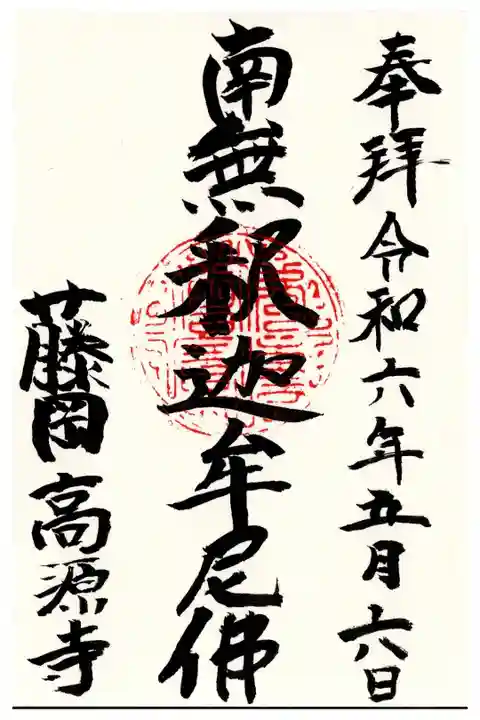 奉拝令和六年五月六日
南無釈迦牟尼佛
藤岡高源寺